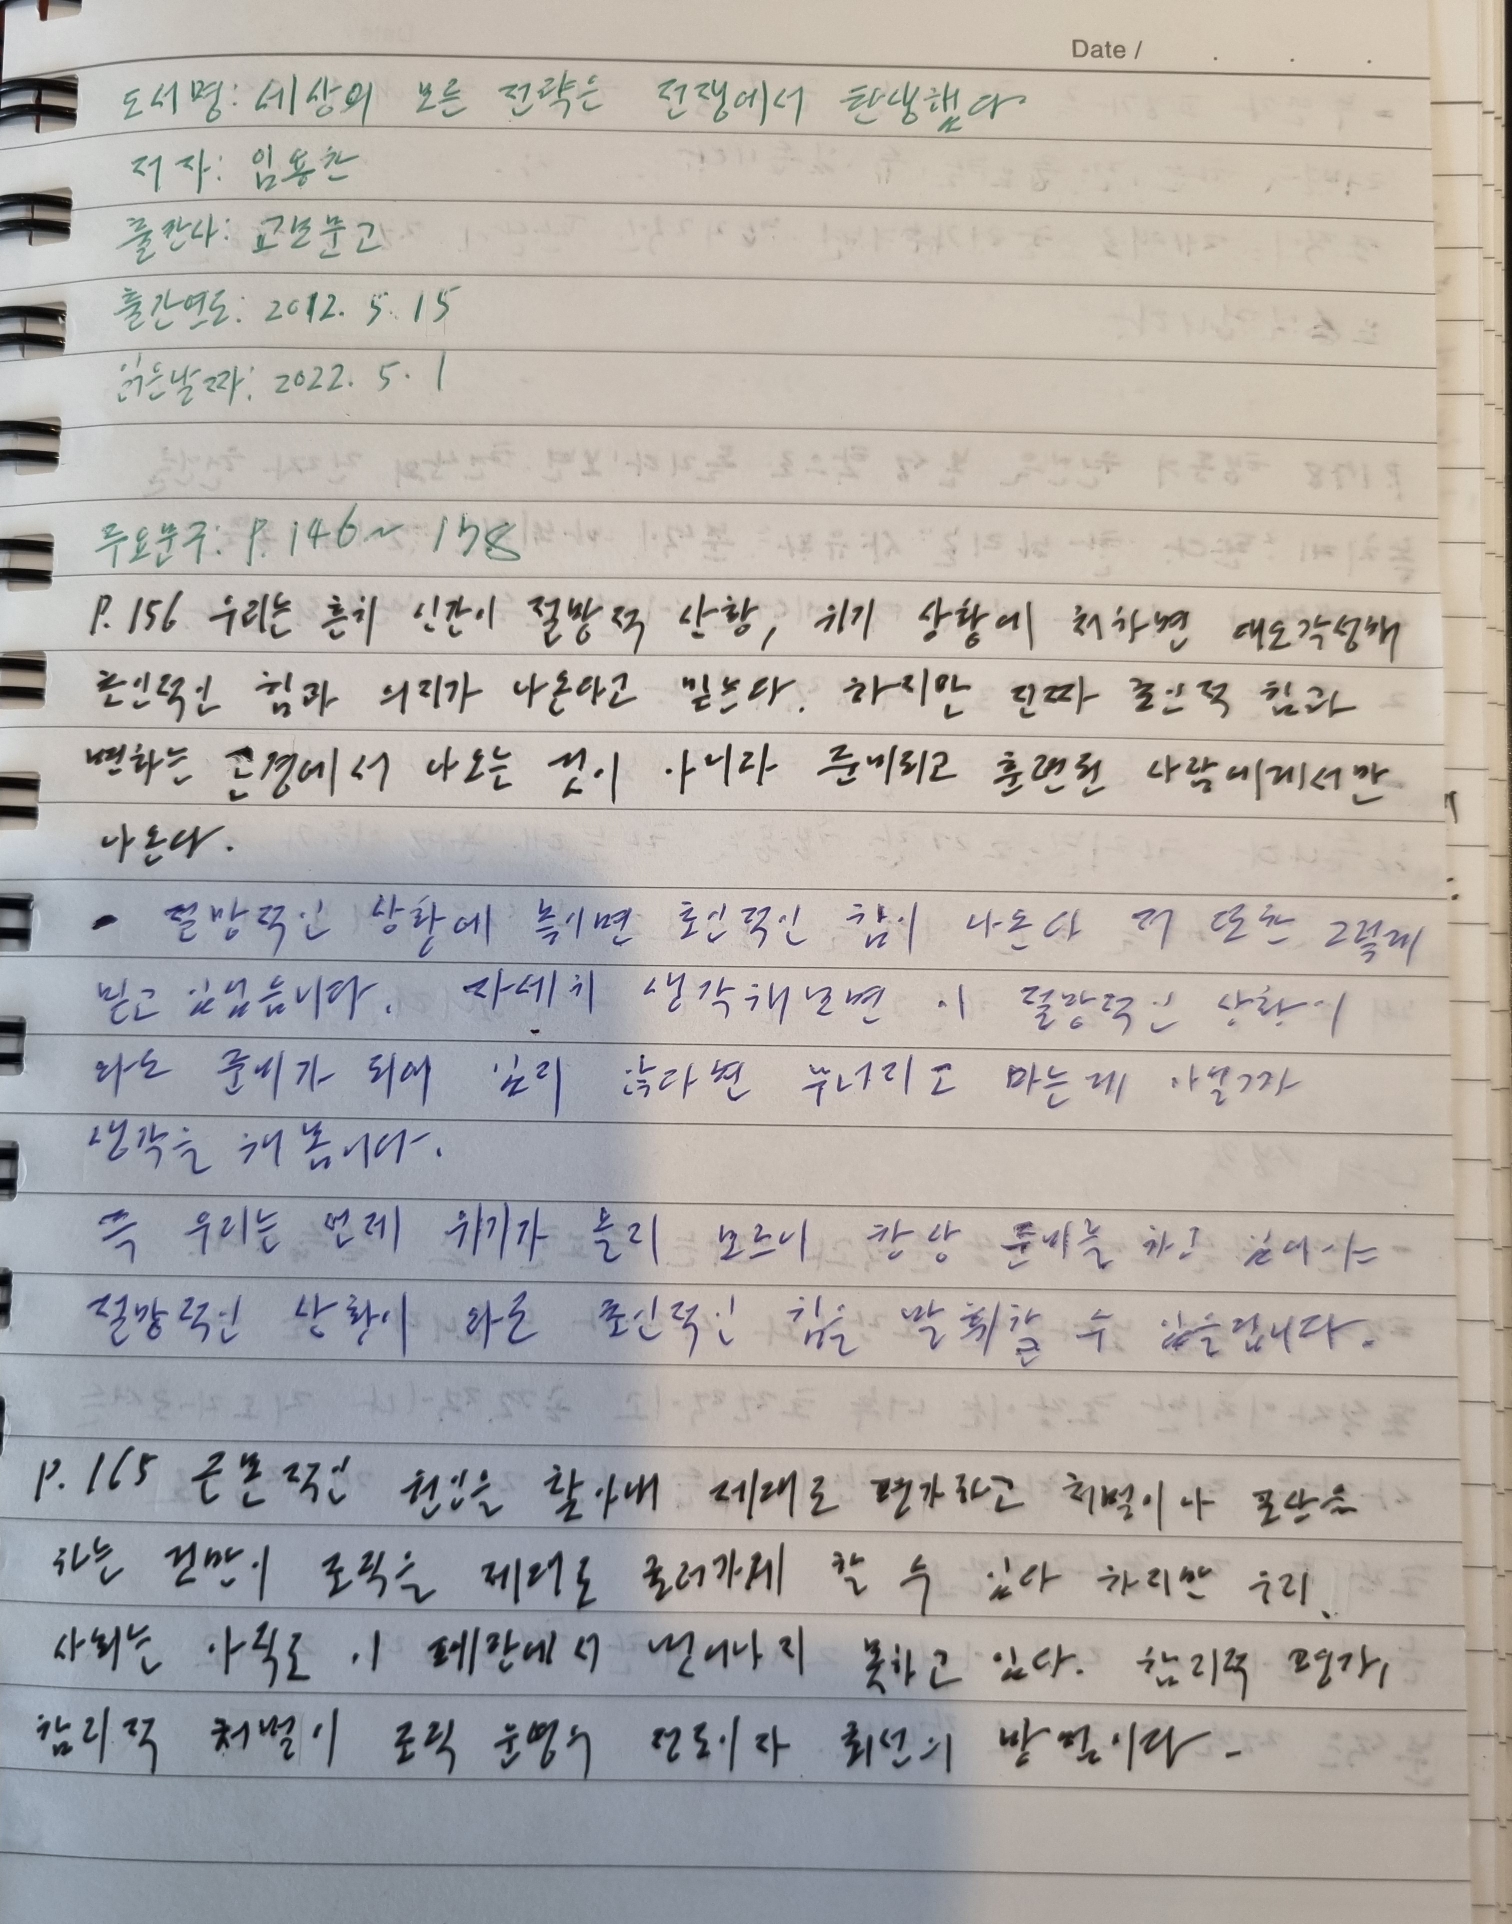 Date / . . .
도서명: 세상의 모든 전략은 전쟁에서 탄생했다
저자: 임용한
출판사: 교보문고
출간연도: 2012. 5. 15
읽은날짜: 2022. 5. 1
주요문구: P. 146~ 158
P. 156 우리는 흔히 인간이 절망적 상황, 위기 상황에 처하면 대오각성해
초인적인 힘과 의지가 나온다고 믿는다. 하지만 진짜 초인적 힘과
변화는 곤경에서 나오는 것이 아니라 준비되고 훈련된 사람에게서만
나온다.
- 절망적인 상황에 놓이면 초인적인 힘이 나온다 저 또한 그렇게
믿고 있었습니다. 자세히 생각해보면 이 절망적인 상황이
와도 준비가 되어 있지 않다면 무너지고 마는게 아닐까
생각을 해 봅니다.
즉 우리는 언제 위기가 올지 모르니 항상 준비를 하고 있어야
절망적인 상황이 와도 초인적인 힘을 발휘할 수 있을겁니다.
P. 165 근본적인 원인을 찾아내 제대로 평가하고 처벌이나 포상을
하는 것만이 조직을 제대로 굴러가게 할 수 있다 하지만 우리
사회는 아직도 이 폐단에서 벗어나지 못하고 있다. 합리적 평가,
합리적 처벌이 조직 운영의 정도이자 최선의 방법이다.